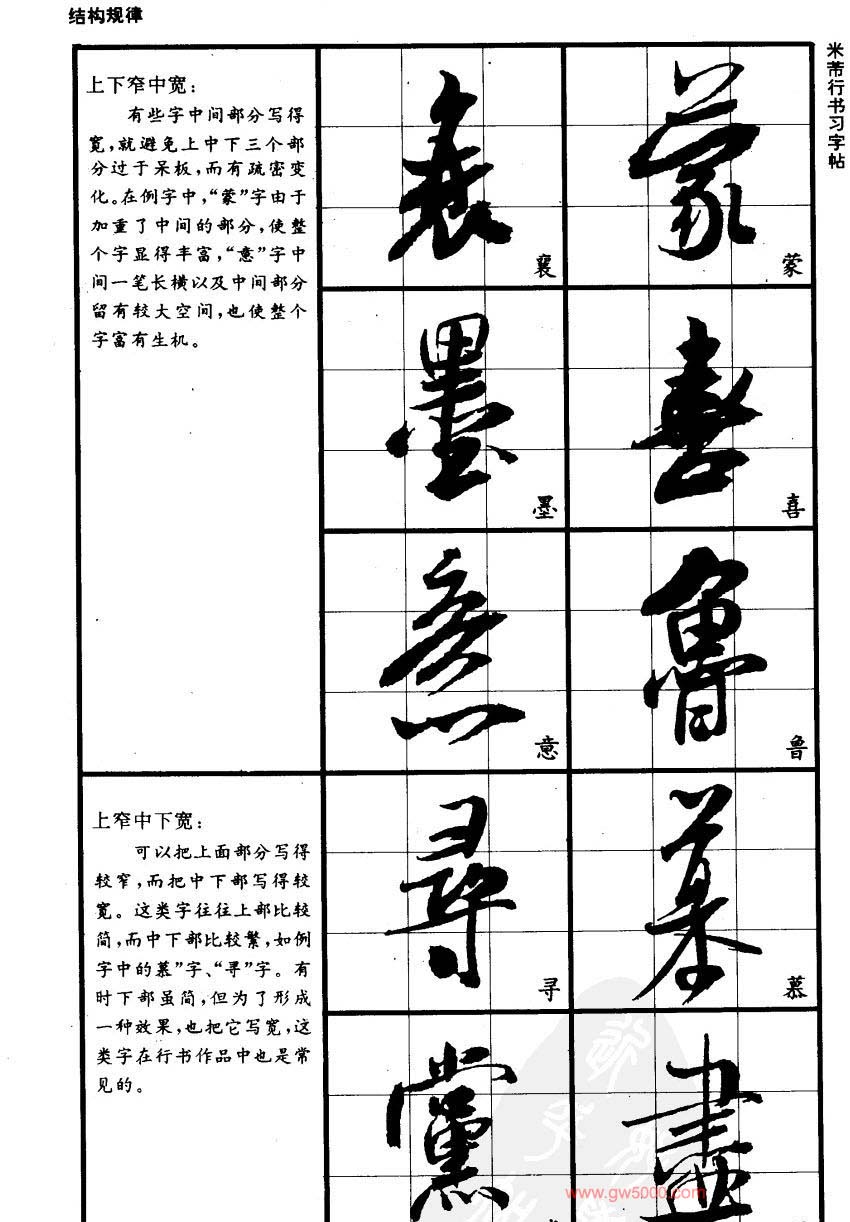 结构规律
米芾行书习字帖
上下窄中宽：
有些字中间部分写得
宽，就避免上中下三个部
分过于呆板，而有疏密变
化。在例字中，“蒙”字由于
加重了中间的部分，使整
个字显得丰富，“意”字中
间一笔长横以及中间部分
留有较大空间，也使整个
字富有生机。
蒙
襄
喜
墨
鲁
意
上窄中下宽：
可以把上面部分写得
较窄，而把中下部写得较
宽。这类字往往上部比较
简，而中下部比较繁，如例
字中的慕”字、“寻”字。有
时下部虽简，但为了形成
一种效果，也把它写宽，这
类字在行书作品中也是常
见的。
慕
寻
盡
黨
www.gw5000.com